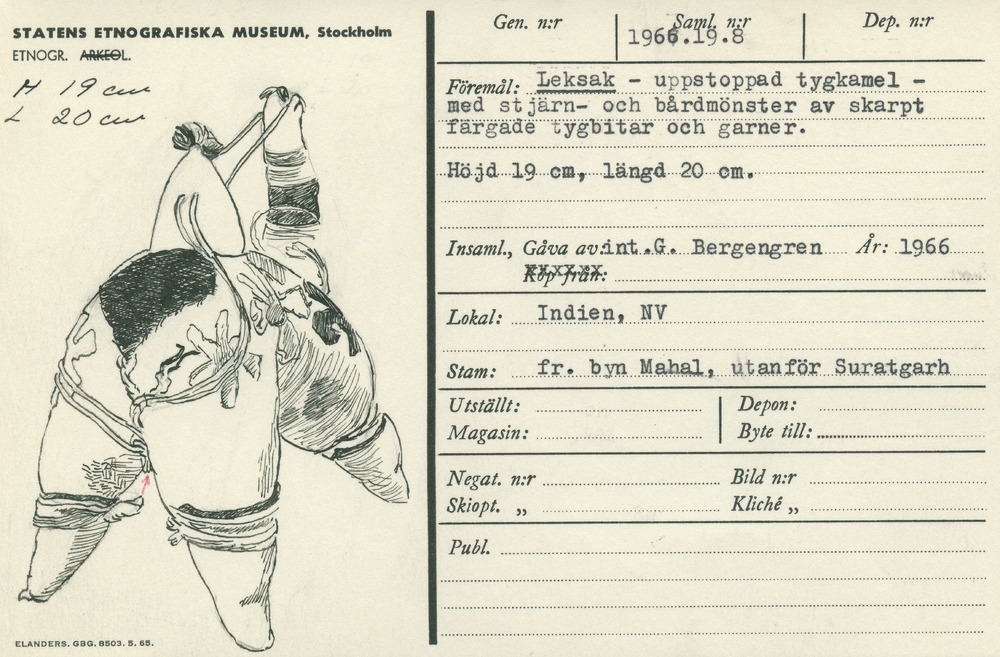 STATENS ETNOGRAFISKA MUSEUM, Stockholm
ETNOGR. ARKEOL.
H 19 cm
L 20 cm
ELANDERS. GBG. 8503. 5. 65.
Gen. n:r Saml. n:r Dep. n:r
1966.19.8
Föremål: Leksak - uppstoppad tygkamel -
med stjärn- och bårdmönster av skarpt
färgade tygbitar och garner.
Höjd 19 cm, längd 20 cm.
Insaml., Gåva av: int.G. Bergengren År: 1966
Köp från:
Lokal: Indien, NV
Stam: fr. byn Mahal, utanför Suratgarh
Utställt: Depon:
Magasin: Byte till:
Negat. n:r Bild n:r
Skiopt. „ Kliché „
Publ.